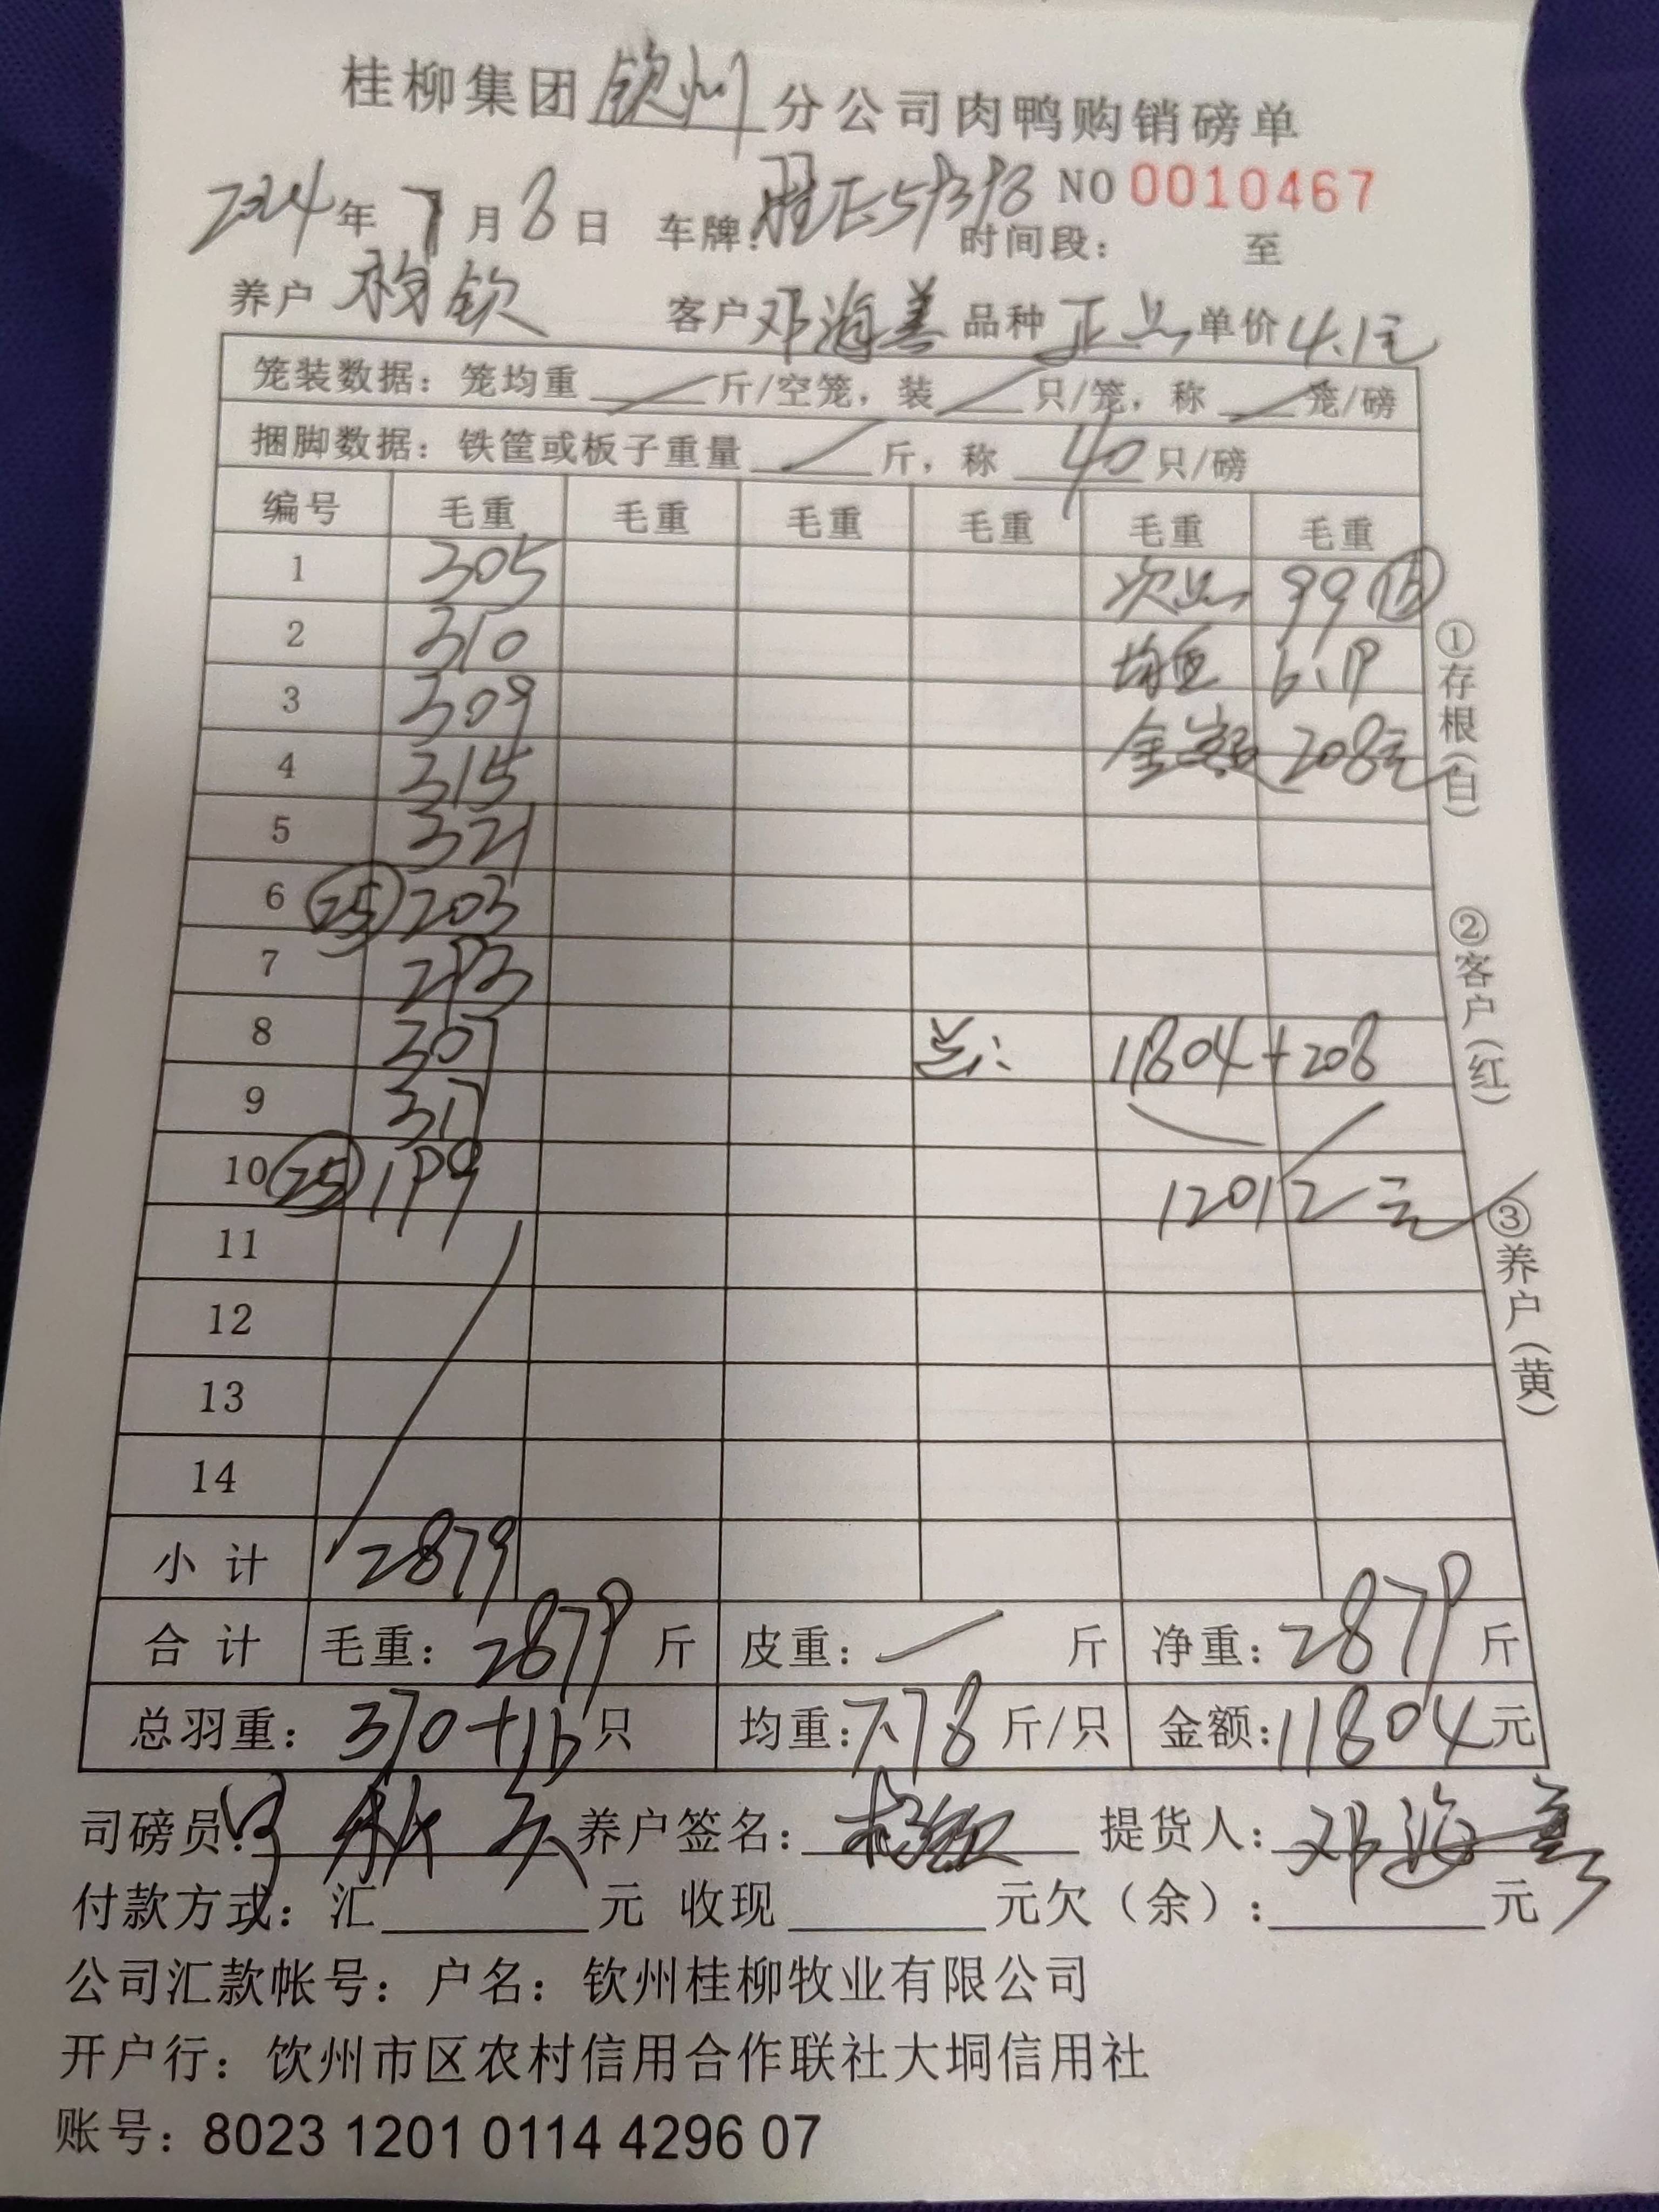 桂柳集团 钦州 分公司肉鸭购销磅单
2024年 7月 8日 车牌: NO 0010467
时间段: 至
养户 钦 客户 邓海善 品种 正品 单价 4.1元
笼装数据: 笼均重 / 斤/空笼, 装 / 只/笼, 称 / 笼/磅
捆脚数据: 铁筐或板子重量 / 斤, 称 40 只/磅
编号 毛重 毛重 毛重 毛重 毛重 毛重
1 305 次品 99 (16)
2 310 均重 6.19
3 309 金额 208元
4 315
5 321
6 (25) 203
7 293
8 307 总: 11804+208
9 317
10 (25) 199 12012元
11
12
13
14
小计 2879
合计 毛重: 2879 斤 皮重: / 斤 净重: 2879 斤
总羽重: 370+16 只 均重: 7.78 斤/只 金额: 11804 元
司磅员: 养户签名: 提货人: 邓海善
付款方式: 汇 元 收现 元欠(余): 元
公司汇款帐号: 户名: 钦州桂柳牧业有限公司
开户行: 钦州市区农村信用合作联社大垌信用社
账号: 8023 1201 0114 4296 07
①存根(白)
②客户(红)
③养户(黄)